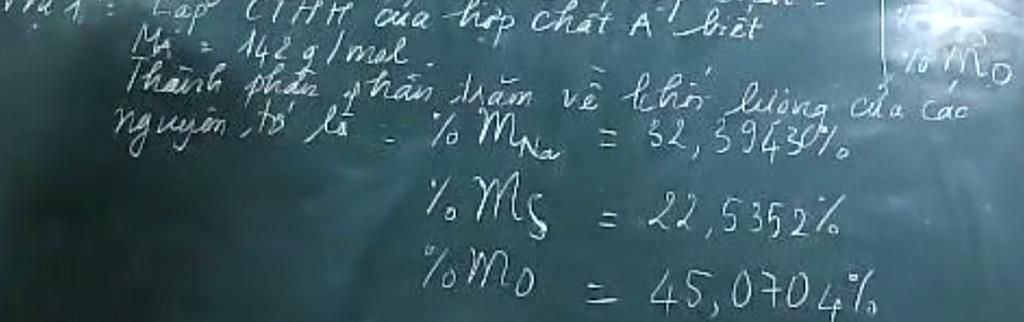 Lập CTHH của hợp chất A biết
MA = 142 g/mol.
% mO
Thành phần phần trăm về khối lượng của các
nguyên tố là - % mNa = 32,3943%
% mS = 22,5352%
% mO = 45,0704%